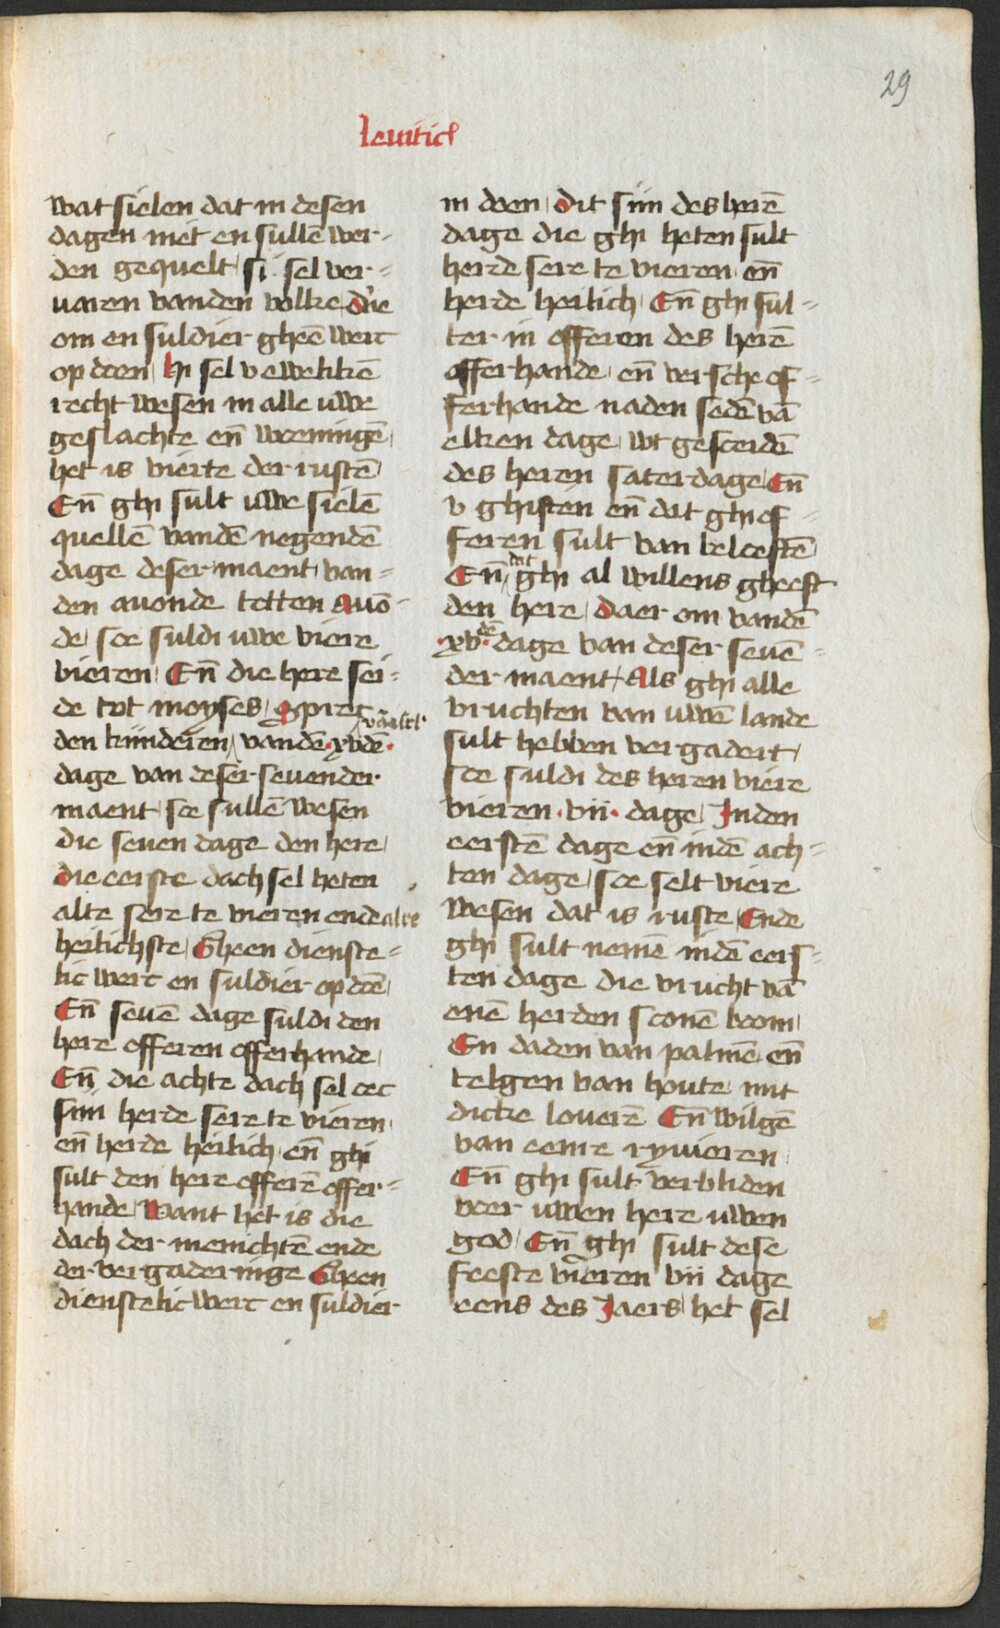 29
leuitici
wat sielen dat in desen
dagen niet en sullē wer-
den gequelt si sel ver-
uaren vanden volke dair
om en suldier gheē werc
op doen hi sel v eweliken
recht wesen in alle uwe
geslachte eñ woeningē
het is vierte der rustē
Eñ ghi sult uwe sielē
quellē vandē negendē
dage deser maent van-
den auonde totten Auō-
de soe suldi uwe viere
vieren Eñ die here sei-
de tot moyses Sprec
vā israel
den kinderen vandē xvdē
dage van deser seuender
maent soe sullē wesen
die seuen dage den here
die eerste dach sel heten
alre sere te vieren ende alre
heilichste Gheen dienste-
lic werc en suldier op doē
Eñ seuē dage suldi den
here offeren offerhande
Eñ die achte dach sel oec
siin herde sere te vieren
eñ herde heilich eñ ghi
sult den here offerē offer-
hande Want het is die
dach der menichtē ende
der vergaderinge Gheen
dienstelic werc en suldier
in doen Dit siin des herē
dage die ghi heten sult
herde sere te vieren eñ
herde heilich Eñ ghi sul-
ter in offeren des herē
offerhande eñ versche of-
ferhande naden sedē vā
elken dage wt gesceidē
des heren saterdage Eñ
v ghiften eñ dat ghi of-
feren sult van beloeftē
dit
Eñ ghi al willens gheeft
den here Daer om vandē
xvdē dage van deser seuē-
der maent Als ghi alle
vruchten van uwē lande
sult hebben vergadert
soe suldi des heren viere
vieren vii dage Jnden
eerstē dage eñ indē ach-
ten dage soe selt viere
wesen dat is ruste Ende
ghi sult nemē indē eers-
ten dage die vrucht vā
enē herden sconē boom
En daden van palmē eñ
telgen van houte mit
dicke louerē Eñ wilgē
van eenre ryuieren
Eñ ghi sult verbliden
voer uwen here uwen
god Eñ ghi sult dese
feeste vieren vii dage
eens des Jaers het sel